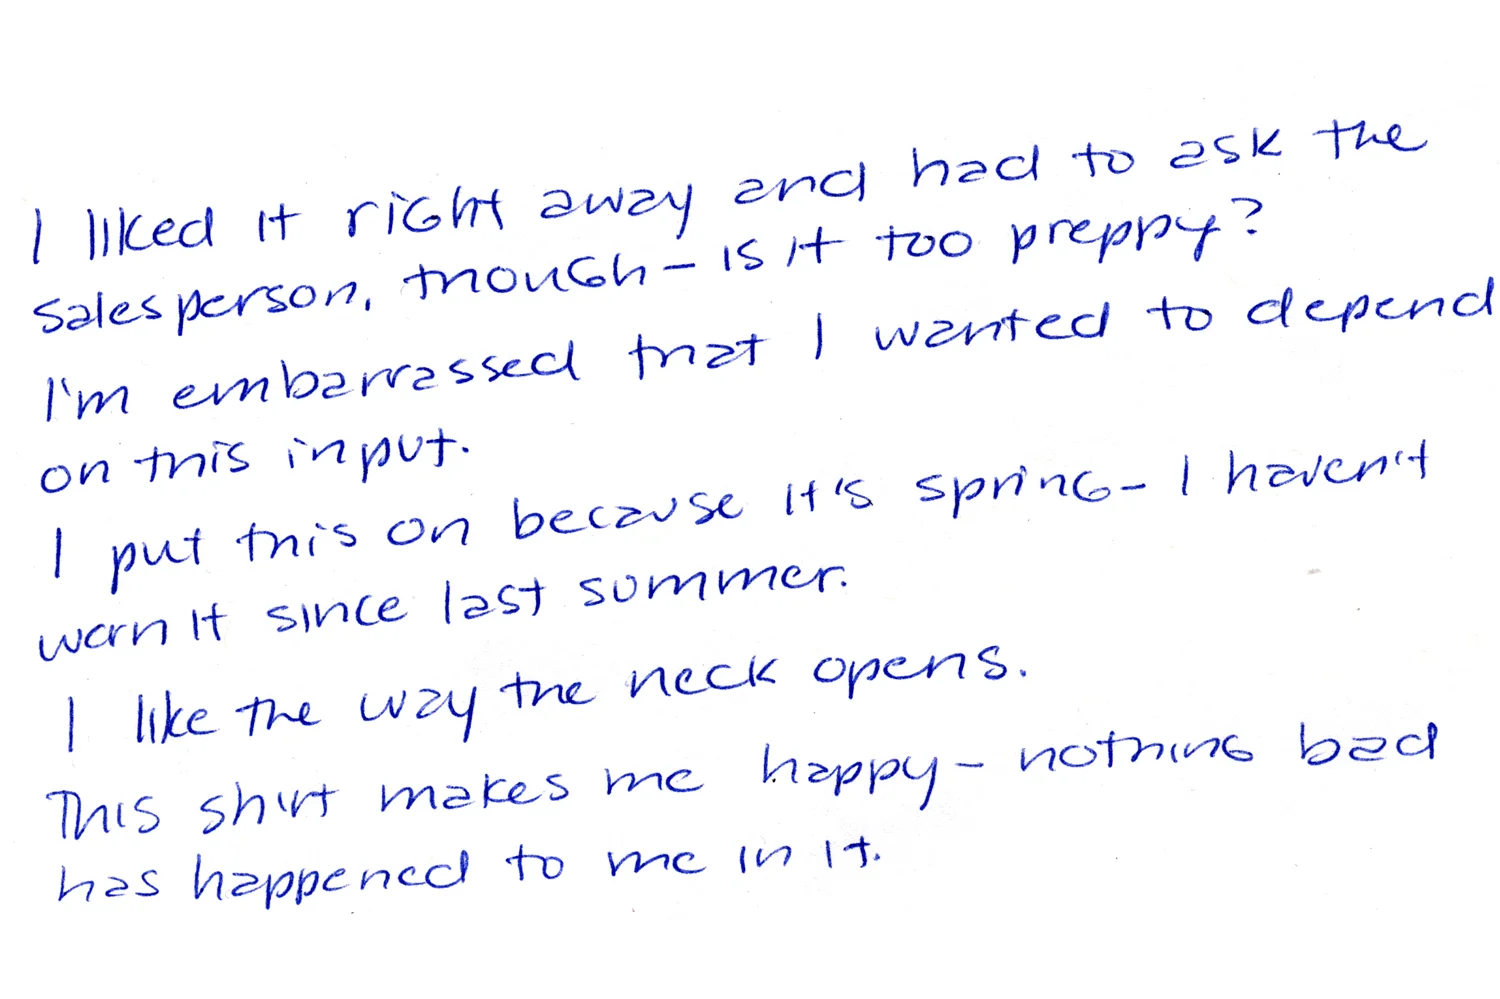 I liked it right away and had to ask the
salesperson, though – is it too preppy?
I'm embarrassed that I wanted to depend
on this input.
I put this on because it's spring – I haven't
worn it since last summer.
I like the way the neck opens.
This shirt makes me happy – nothing bad
has happened to me in it.